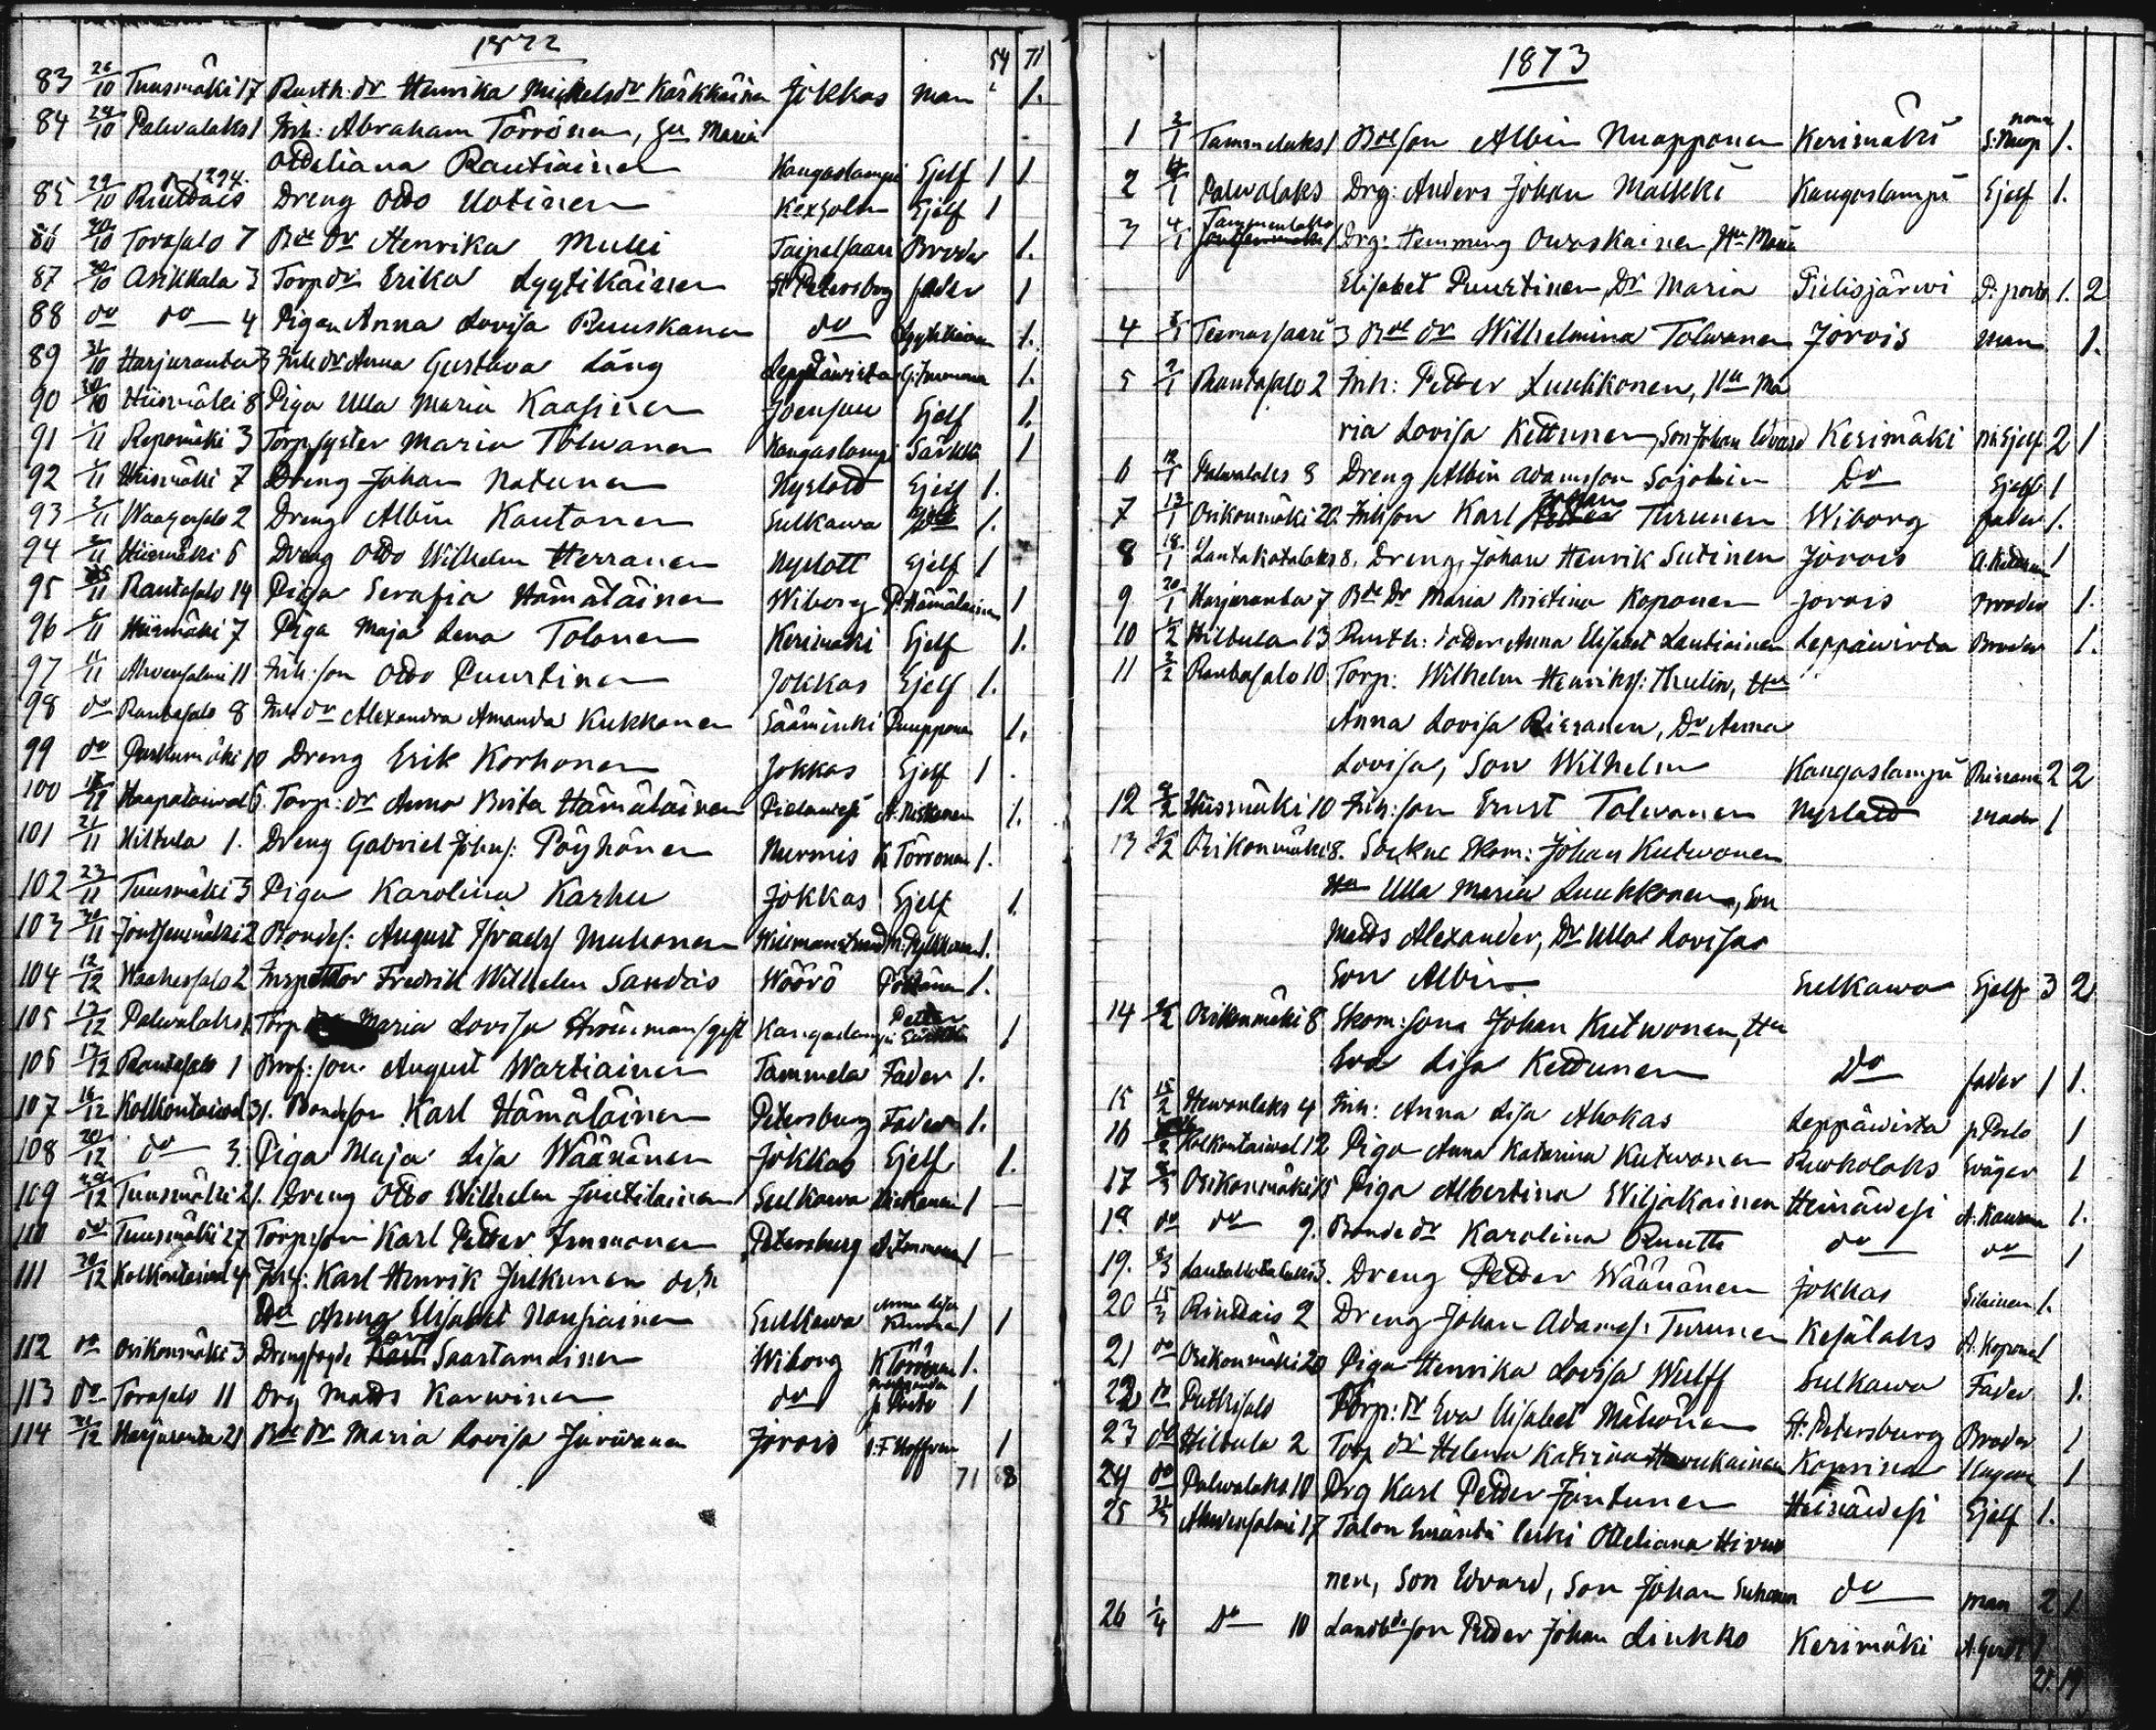 1872
54 71
83 26/10 Tuusmäki 17 Rusth: dr Henrika Michelsdr Kärkkäinen Jokkas man 1.
84 29/10 Palvalaks 1 Inh: Abraham Törrönen, Hu Maria
Otteliana Rautiainen Kangaslampi Sjelf 1 1
1294.
85 29/10 Dreng Otto Uotinen Kexholm Sjelf 1
86 30/10 Torasalo 7 Bde dr Henrika Muhi Taipalsaari Broder 1.
87 30/10 Asikkala 3 Torp dr Erika Lyytikäinen St Petersbrg fader 1
88 do do 4 Pigan Anna Lovisa Ruuskanen do Lyytikäinen 1.
89 31/10 Harjuranta 3 Inh dr Anna Gustava Lång Leppävirta G. Immonen 1.
90 30/10 Hiismäki 8 Piga Ulla Maria Kaasinen Joensuu Sjelf 1.
91 1/11 Repomäki 3 Torp syster Maria Tolvanen Kangaslampi Särkkä 1
92 1/11 Hiismäki 7 Dreng Johan Natunen Nyslott Sjelf 1.
93 2/11 Waahersalo 2 Dreng Albin Kautonen Sulkawa Sjelf 1.
94 2/11 Hiismäki 6 Dreng Otto Wilhelm Herranen Nyslott Sjelf 1
95 /11 Rantasalo 14 Piga Serafia Hämäläinen Wiborg P. Hämäläinen 1
96 /11 Hiismäki 7 Piga Maja Lena Tolonen Kerimäki Sjelf 1.
97 11/11 Ahvensalmi 11 Inh: son Otto Puurtinen Jokkas Sjelf 1.
98 do Rantasalo 8 Inh dr Alexandra Amanda Kukkonen Sääminki Puupponen 1.
99 do Purhumäki 10 Dreng Erik Korhonen Jokkas Sjelf 1.
100 18/11 Haapataival 6. Torp: dr Anna Brita Hämäläinen Pielavesi A. Niskanen 1.
101 21/11 Hiltula 1. Dreng Gabriel Johns: Pöyhönen Nurmis K Törrönen 1.
102 23/11 Tuusmäki 3 Piga Karolina Karhu Jokkas Sjelf 1.
103 30/11 Jontsenmäki 2 Bondes: August Israels Muhonen Wilmanstrand M. Pylkkönen 1.
104 12/12 Waahersalo 2 Inspektor Fredrik Wilhelm Sandås Wöörö Pöllänen 1.
105 13/12 Palvalaks 1 Torp Maria Lovisa Strömman/gift Kangaslampi Petter Särkkä 1
106 13/12 Rantasalo 1 Prof: son August Wartiainen Tammela Fader 1.
107 16/12 Kolkontaival 31. Bondeson Karl Hämäläinen Petersburg Fader 1.
108 20/12 do 3. Piga Maja Lisa Wäänänen Jokkas Sjelf 1.
109 29/12 Tuusmäki 21. Dreng Otto Wilhelm Juutilainen Sulkawa Miettinen 1
110 do Tuusmäki 27 Torp: son Karl Petter Immonen Petersburg A. Immonen 1
111 30/12 Kolkontaival 4 Inh: Karl Henrik Julkunen och
Dr Anna Elisabet Nousiainen Sulkawa Anna Lisa 1 1
112 do Osikonmäki 3 Drengfogde Saastamoinen Wiborg K Törrönen 1.
113 do Torasalo 11 Drg Matts Karvinen do p Porto 1
114 31/12 Harjuranta 21 Bde dr Maria Lovisa Järvinen Jorois J. F Hoffren 1
71 68
1873
1 2/1 Tammelaks 1 Bdeson Albin Nuopponen Kerimäki S. Nuop nonen 1.
2 4/1 Palvalaks Drg: Anders Johan Malkki Kangaslampi Sjelf 1.
3 4/1 Tammenlaks Drg: Hemming Ovaskainen, Hu Maria
Elisabet Puurtinen, Dr Maria Pielisjärwi P. porto 1. 2
4 5/1 Teemassaari 3 Bde dr Wilhelmina Tolvanen Jorois man 1.
5 7/1 Rantasalo 2 Inh: Petter Luukkonen, Hu Ma
ria Lovisa Kettunen, Son Johan Edvard Kerimäki Sjelf 2 1
6 12/1 Palvalaks 8 Dreng Albin Adamsson Sojakin Do Sjelf 1
7 13/1 Osikonmäki 20. Inhson Karl Johan Turunen Wiborg fader 1.
8 18/1 Lautakotalaks 8. Dreng Johan Henrik Sutinen Jorois A. Kettunen 1
9 20/1 Harjuranta 7 Bde Dr Maria Kristina Koponen Jorois Broder 1.
10 1/2 Hiltula 13 Rusth: Anna Elisabet Lautiainen Leppävirta Broder 1.
11 2/2 Rantasalo 10 Torp: Wilhelm Henriks: Thulin, Hu
Anna Lovisa Rieranen, Dr Anna
Lovisa, Son Wilhelm Kangaslampi 2 2
12 9/2 Hiismäki 10 Inh: son Ernst Tolvanen Nyslott Moder 1
13 /2 Osikonmäki 8. Socknesskom: Johan Kutvonen
Hu Ulla Maria Luukkonen, Son
Matts Alexander, Dr Ulla Lovisa
Son Albin Sulkawa Sjelf 3 2
14 /2 Osikonmäki 8 Skom: sone Johan Kutvonen, Hu
Eva Lisa Kettunen Do fader 1 1.
15 15/2 Hevonlaks 4 Inh: Anna Lisa Ahokas Leppävirta p Porto 1
16 /2 Kolkontaival 12 Piga Anna Katarina Kutvonen Ruokolaks Svåger 1
17 2/3 Osikonmäki 15 Piga Albertina Wiljakainen Heinävesi A. Kauranen 1.
18 do do 9. Bonde dr Karolina Ruuth do do 1
19. 8/3 Lautakotalaks 3. Dreng Petter Wäänänen Jokkas Silvinen 1.
20 15/3 Rindais 2 Dreng Johan Adams: Turunen Kesälaks A. Koponen 1
21 do Osikonmäki 20 Piga Henrika Lovisa Wulff Sulkawa Fader 1.
22 do Putkisalo Torp: dr Eva Elisabet Mähönen St: Petersburg Broder 1
23 do Hiltula 2 Torp dr Helena Katrina Havukainen Koprina 1
24 do Palvalaks 10 Drg Karl Petter Jäntunen Heinävesi Sjelf 1.
25 31/3 Ahvensalmi 17 Talon Emäntä leski Otteliana Hirvo
nen, Son Edvard, Son Johan Suhonen do man 2 1
26 1/4 Do 10 Landbdeson Petter Johan Liukko Kerimäki 1
21. 19